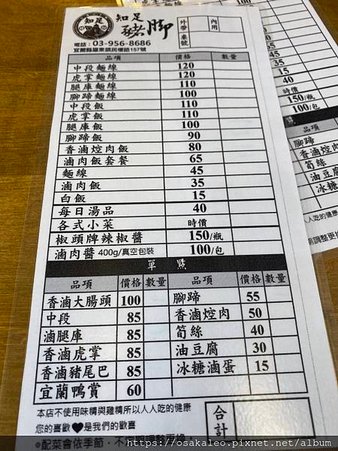 知足 豬腳
知足
外帶 內用
車號
電話：03-956-8686
宜蘭縣羅東鎮民權路157號
品項 價格 數量
中段麵線 120
虎掌麵線 120
腿庫麵線 110
腳蹄麵線 100
中段飯 110
虎掌飯 110
腿庫飯 100
腳蹄飯 90
香滷焢肉飯 80
滷肉飯套餐 65
麵線 45
滷肉飯 35
白飯 15
每日湯品 40
各式小菜 時價
椒頭牌辣椒醬 150/瓶
滷肉醬 400g/真空包裝 100/包
單點
品項 價格 數量 品項 價格 數量
香滷大腸頭 100 腳蹄 55
中段 85 香滷焢肉 50
滷腿庫 85 筍絲 40
香滷虎掌 85 油豆腐 30
香滷豬尾巴 85 冰糖滷蛋 15
宜蘭鴨賞 60
本店不使用味精與雞精所以人人吃的健康
您的喜歡♥是我們的歡喜
合計
※配菜會依季節，不
150/瓶
100/包
品項
腳蹄
香滷焢肉
筍絲
油豆腐
冰糖滷
https://osakaleo.pixnet.net/album